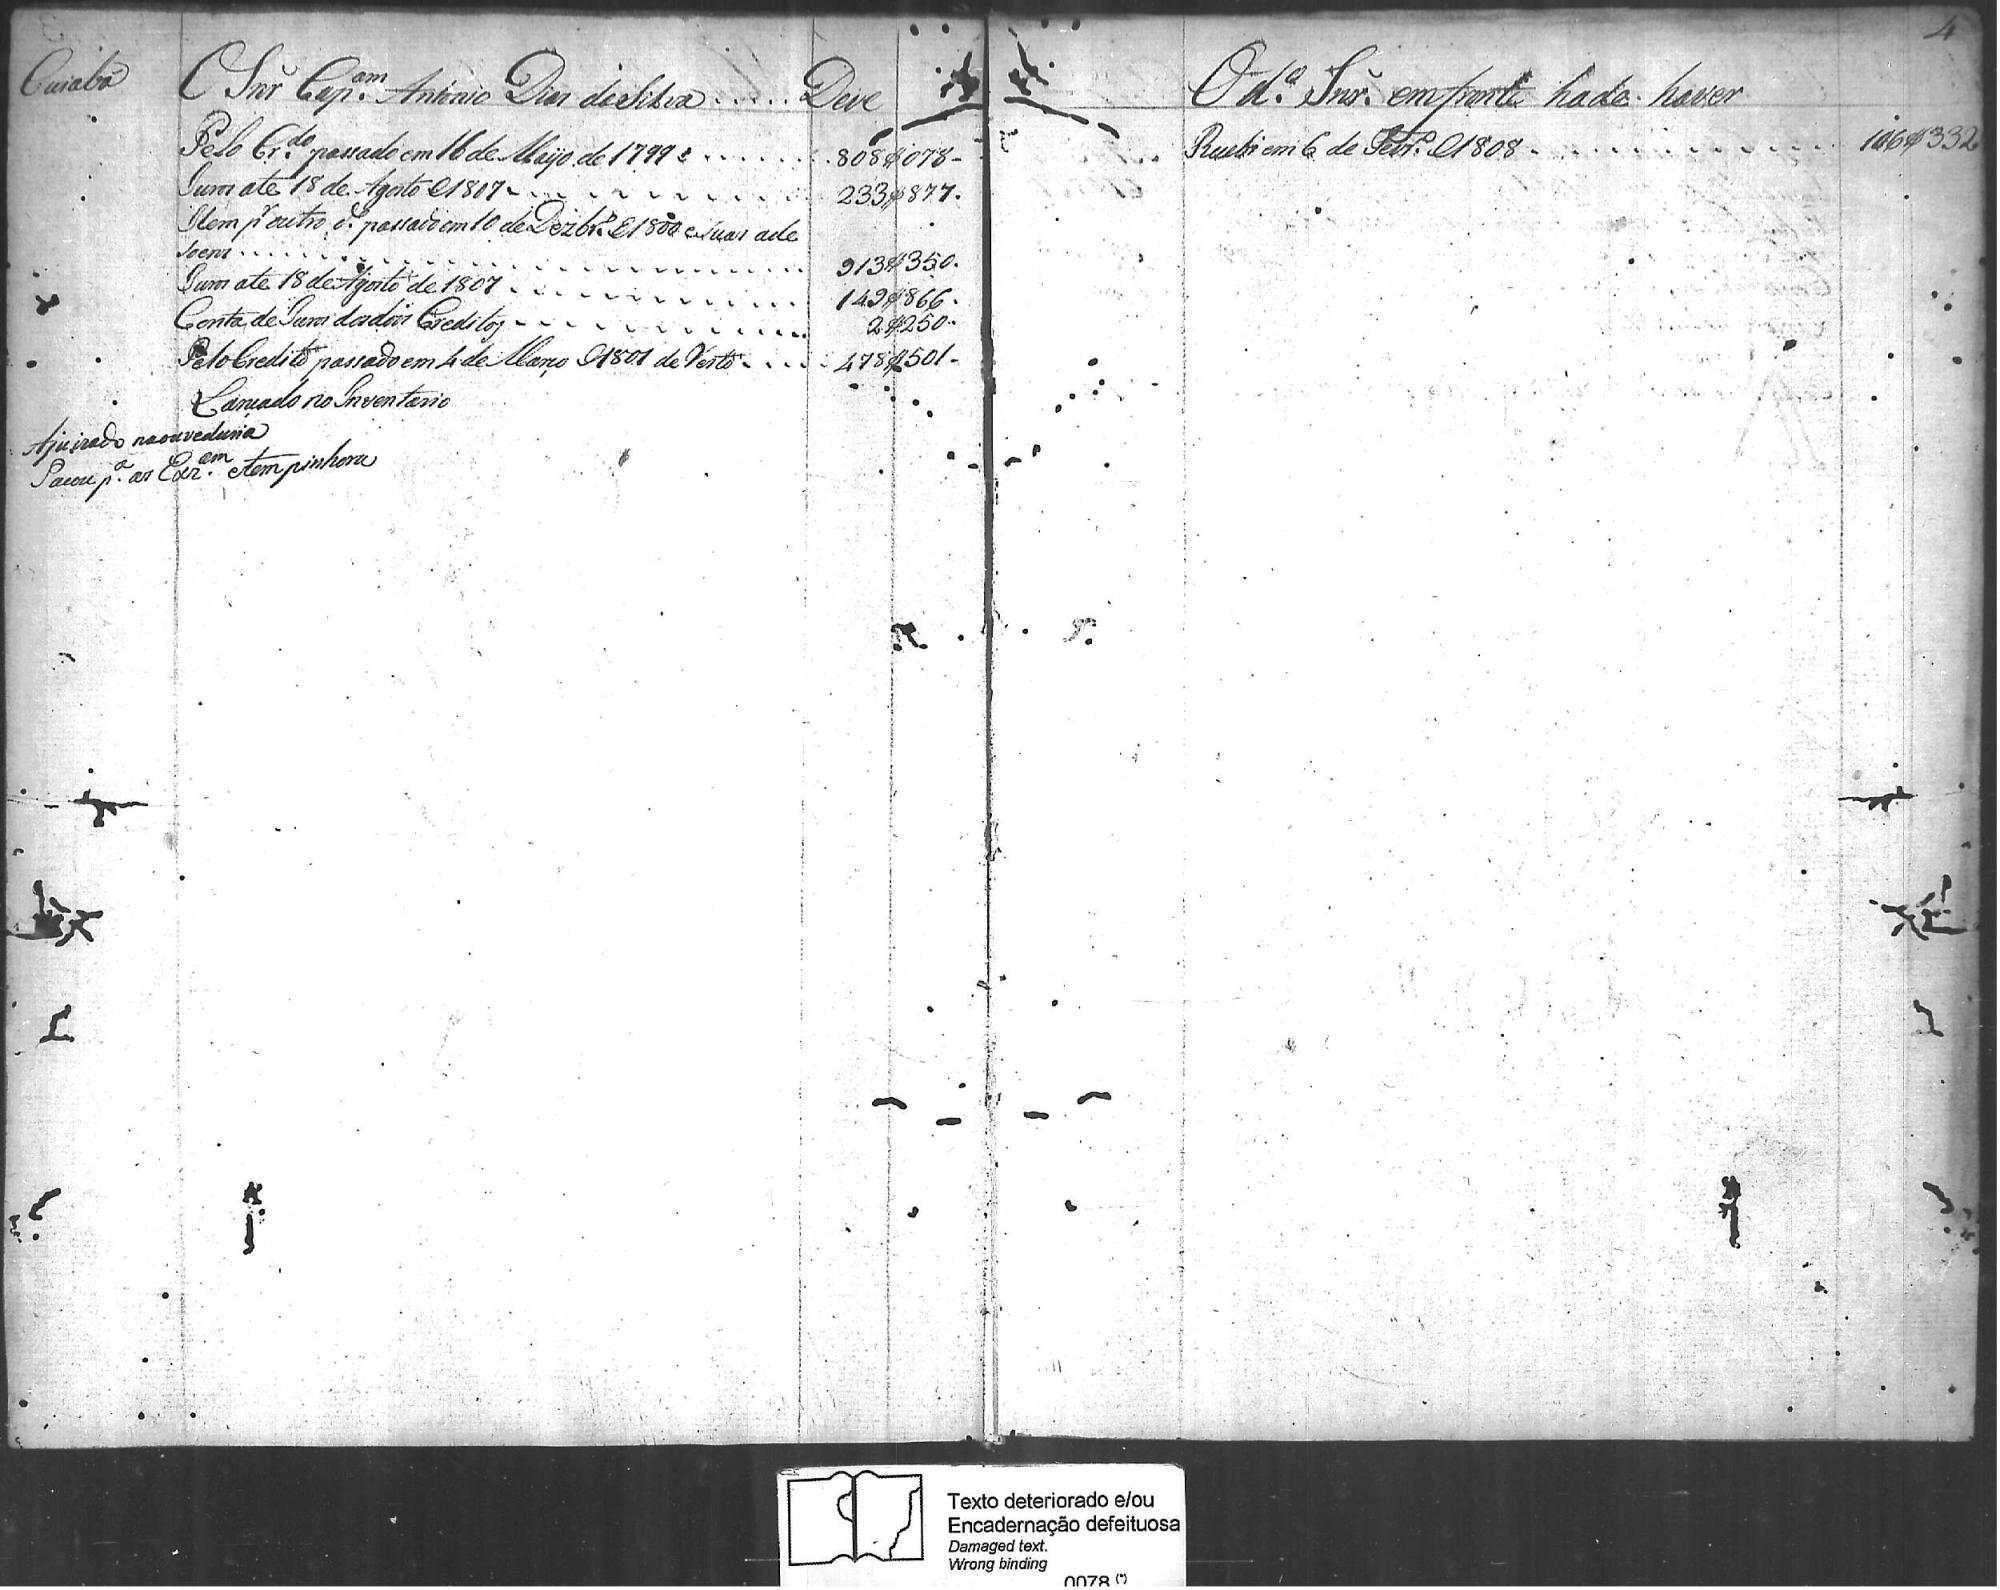 Cuiabá
O Snr Cap.am Antonio Dias da Silva ..... Deve
Pelo Cr.do passado em 16 de Mayo de 1799 ...... 808$078-
Juros ate 18 de Agosto de 1807 ...... 233$877.
Item pr outro do passado em 10 de Dezbr.o de 1800 e suas ade
soens ...... 913$350.
Juros ate 18 de Agosto de 1807 ...... 149$866.
Conta de Juros dos dois Creditos ...... 2$250..
Pelo Credito passado em 4 de Março de 1801 de Resto .... 478$501-
Lançado no Inventario
Ajuizado na ouveduria
p.a as Exz.am e tem pinhora
4
O d.o Snr. em fronte hade haver
Recebi em 6 de Febr.o de 1808 ...... 106$332
Texto deteriorado e/ou
Encadernação defeituosa
Damaged text.
Wrong binding
0078 (*)